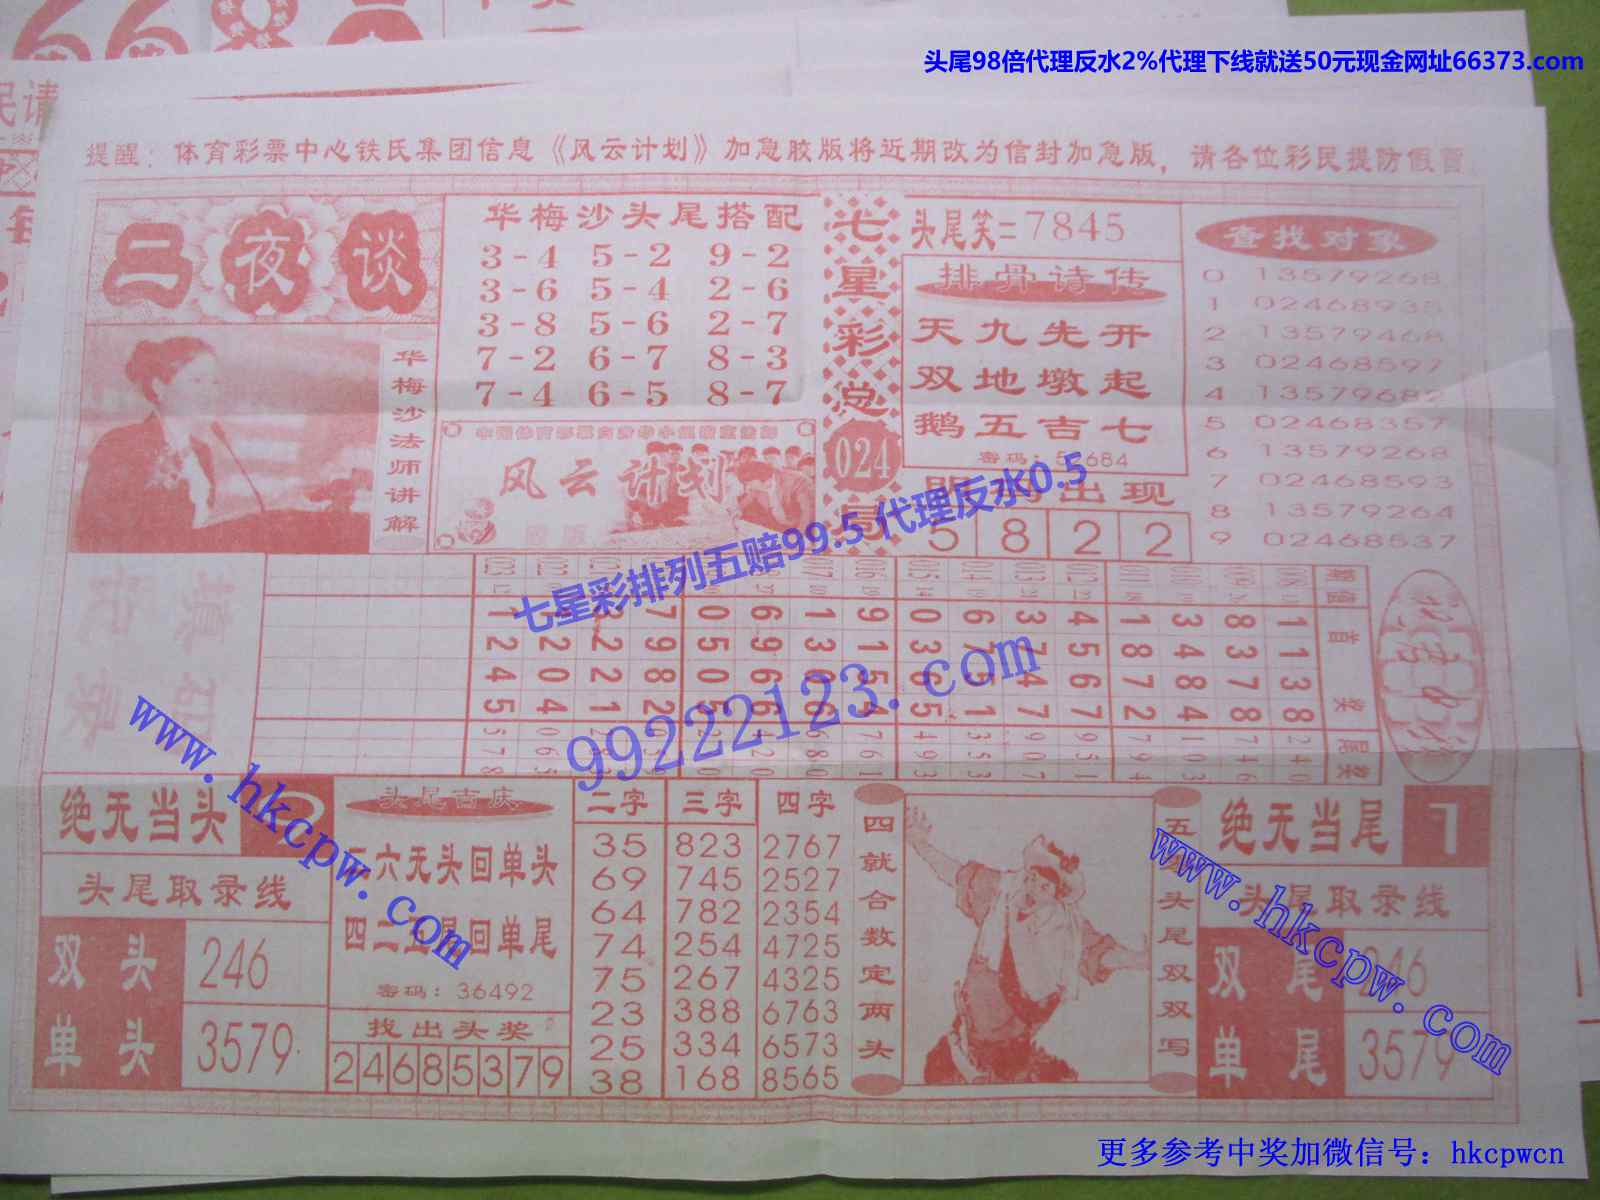 头尾98倍代理反水2%代理下线就送50元现金网址66373.com
民请
提醒：体育彩票中心铁氏集团信息《风云计划》加急胶版将近期改为信封加急版，请各位彩民提防假冒
二夜谈
华梅沙法师讲解
华梅沙头尾搭配
3-4 5-2 9-2
3-6 5-4 2-6
3-8 5-6 2-7
7-2 6-7 8-3
7-4 6-5 8-7
风云计划
七星彩总024局
头尾笑=7845
排骨诗传
天九先开
双地墩起
鹅五吉七
出现
5 8 2 2
查找对象
0 13579268
1 02468935
2 13579468
3 02468597
4 13579682
5 02468357
6 13579268
7 02468593
8 13579264
9 02468537
七星彩排列五赔99.5代理反水0.5
99222123.com
首奖
尾奖
1245
2204
7982
0505
6966
1300
9154
0365
6751
3747
4567
1872
3484
8378
1138
绝无当头
头尾取录线
双头 246
单头 3579
头尾吉庆
六无头回单头
回单尾
密码：36492
找出头奖
24685379
二字 三字 四字
35 823 2767
69 745 2527
64 782 2354
74 254 4725
75 267 4325
23 388 6763
25 334 6573
38 168 8565
四就合数定两头
头尾双双写
绝无当尾 7
头尾取录线
双尾
单尾 3579
www.hkcpw.com
www.hkcpw.com
更多参考中奖加微信号：hkcpwcn